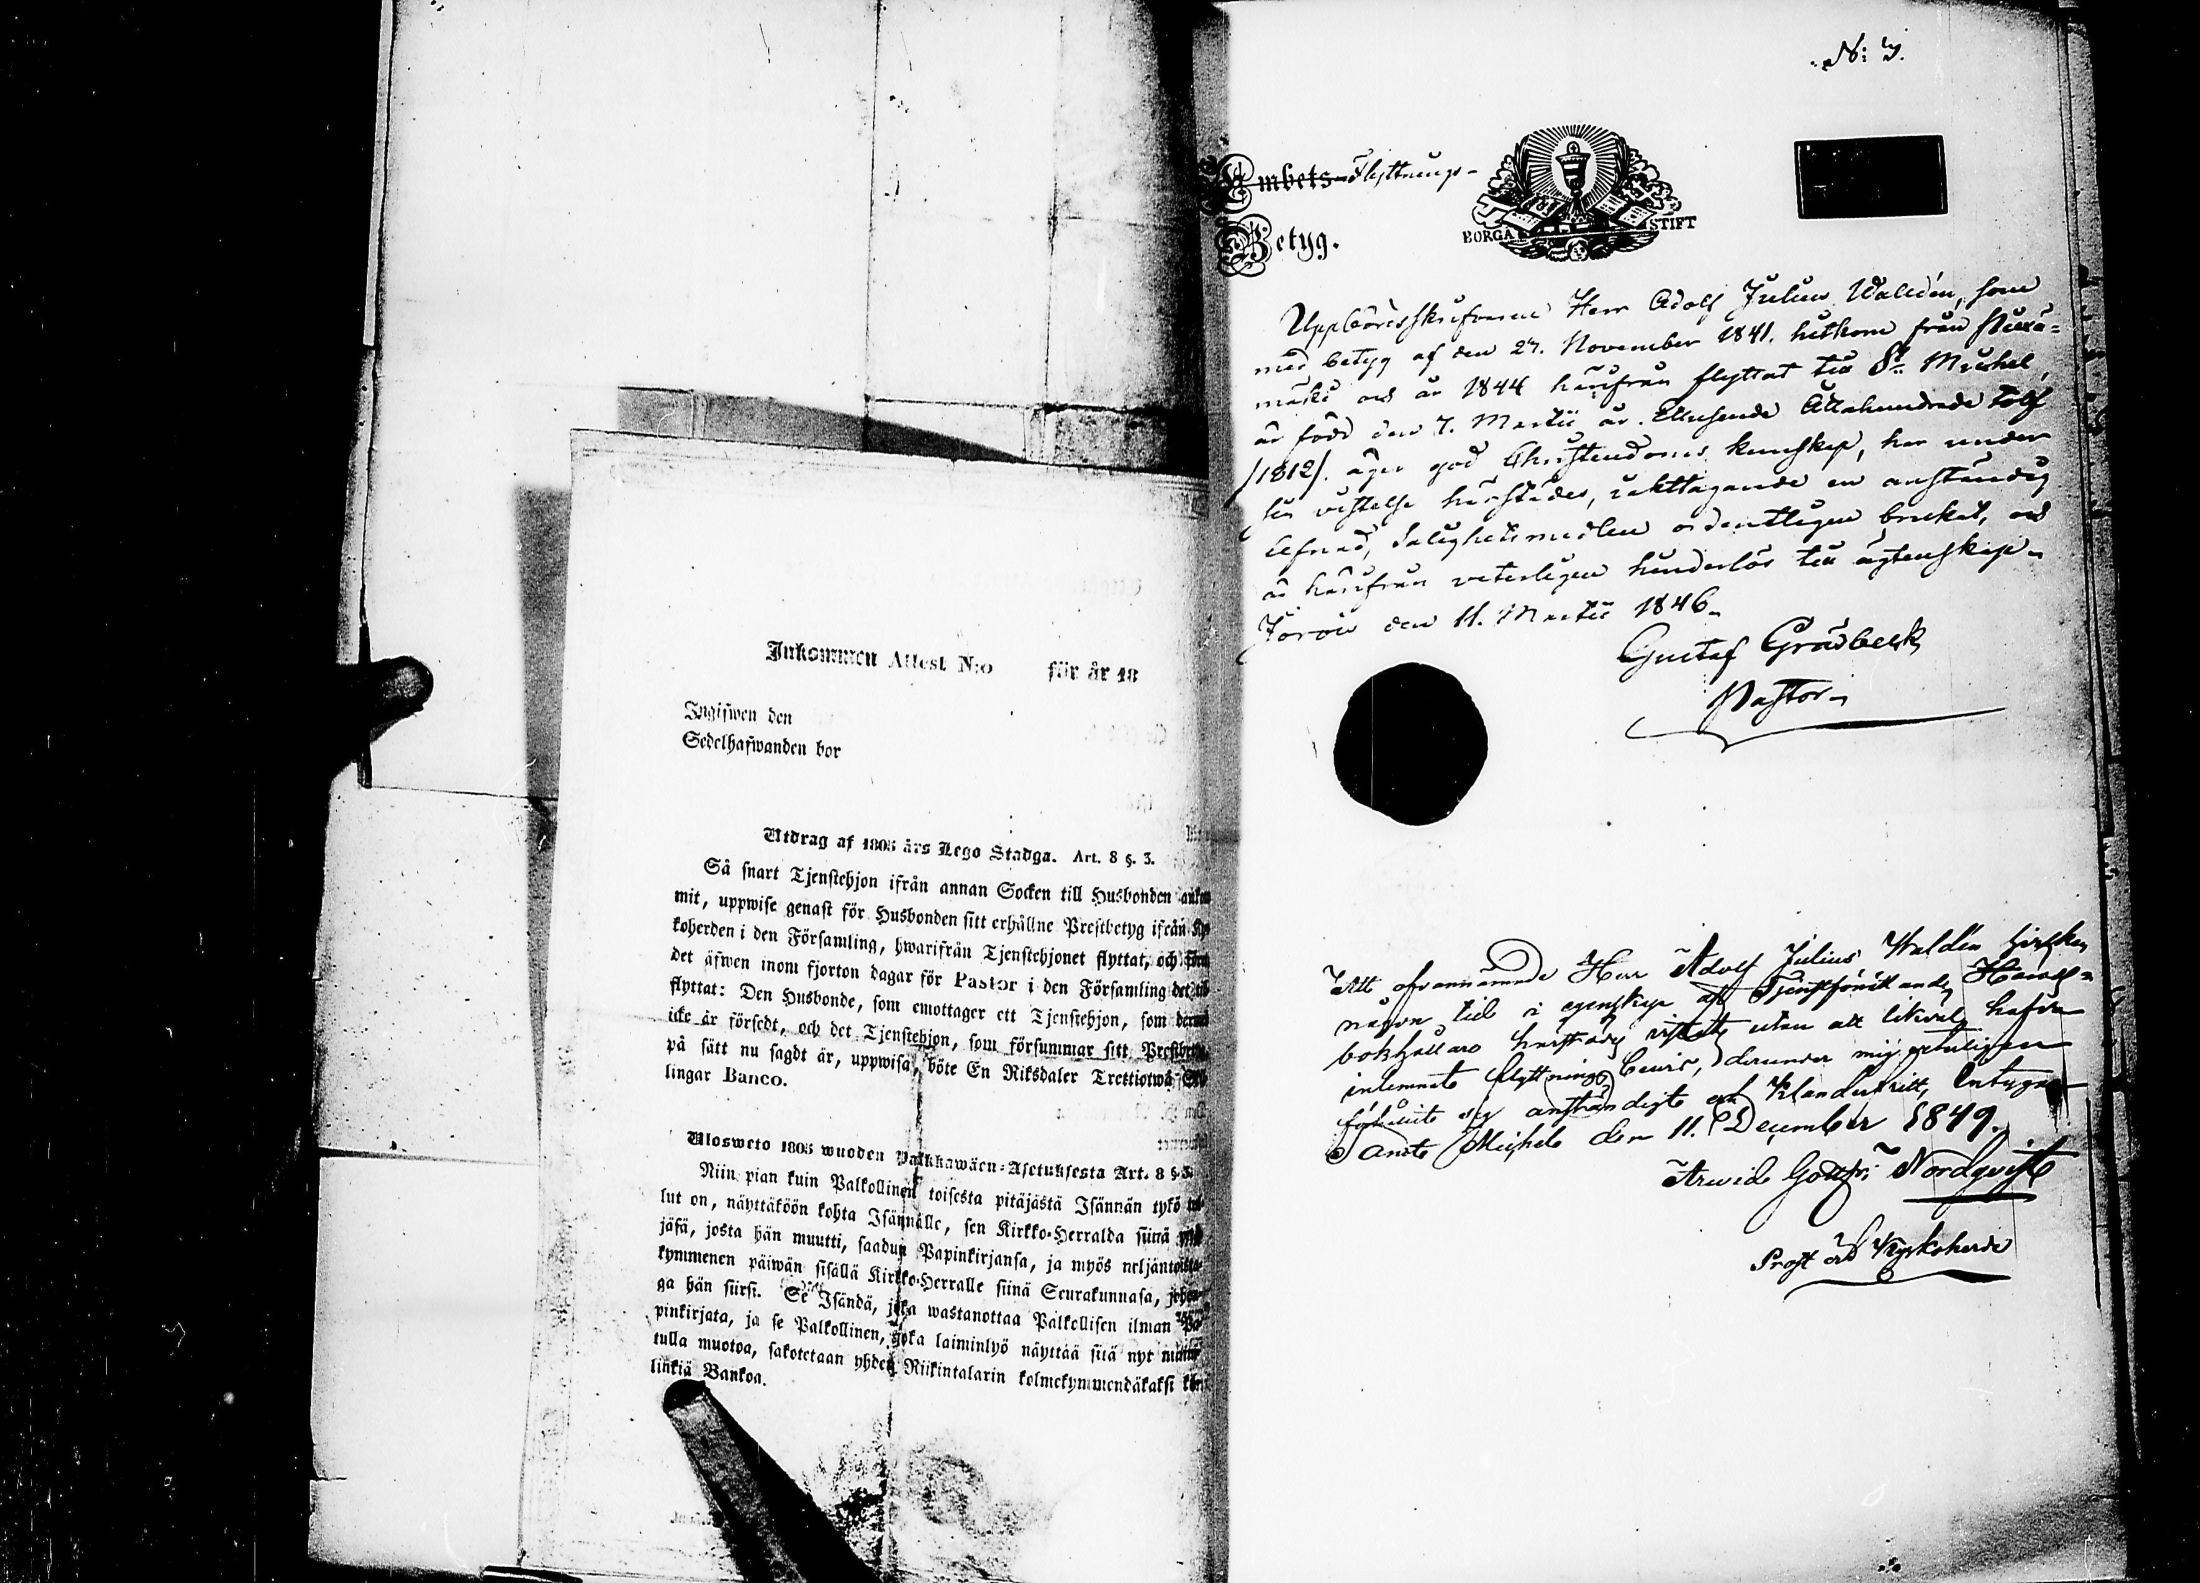 Inkommen Attest N:o för år 18
Ingifwen den
Sedelhafwanden bor
Utdrag af 1805 års Lego Stadga. Art. 8 §. 3.
Så snart Tjenstehjon ifrån annan Socken till Husbonden
mit, uppwise genast för Husbonden sitt erhållne Prestbetyg ifrån
koherden i den Församling, hwarifrån Tjenstehjonet flyttat, och
det äfwen inom fjorton dagar för Pastor i den Församling det
flyttat: Den Husbonde, som emottager ett Tjenstehjon, som
icke är försedt, och det Tjenstehjon, som försummar sitt
på sätt nu sagdt är, uppwisa, böte En Riksdaler Trettiotwå
lingar Banco.
Ulosweto 1805 wuoden Palkkawäen-Asetuksesta Art. 8 § 3.
Niin pian kuin Palkollinen toisesta pitäjästä Isännän tykö
lut on, näyttäköön kohta Isännälle, sen Kirkko-Herralda siinä
jäsä, josta hän muutti, saadun Papinkirjansa, ja myös
kymmenen päiwän sisällä Kirkko-Herralle siinä Seurakunnasa,
ga hän siirsi. Se Isändä, joka wastanottaa Palkollisen ilman
pinkirjata, ja se Palkollinen, joka laiminlyö näyttää sitä nyt
tulla muotoa, sakotetaan yhden Riikintalarin kolmekymmendäkaksi
linkiä Bankoa.
N:
Embets- Flyttnings-
BORGÅ STIFT
Betyg.
Uppbördsskrifvaren Herr Adolf Julius Waldén, som
med betyg af den 27. November 1841. hitkom från
och år 1844 härifrån flyttat till S:t Michel,
är född den 7. Martii år Ettusende Åttahundrade tolf
/1812/. äger god Christendoms kunskap, har under
sin vistelse härstädes, iakttagande en anständig
lefnad, Salighetsmedlen ordentligen brukat, och
är härifrån veterligen hinderlös till ägtenskap.
Jorois den 11. Martii 1846.
Gustaf Grådbeck
Pastor.
Att ofvannämnde Herr Adolf Julius Waldén
någon tid i egenskap af
bokhållare härstädes utan att likväl hafva
inlemnat flyttnings bevis, derunder mig veterligen
förhållit sig anständigt och klanderfritt, intygar
Sancte Michels den 11. December 1849.
Arvid Gottfr: Nordqvist
Prost och Kyrkoherde